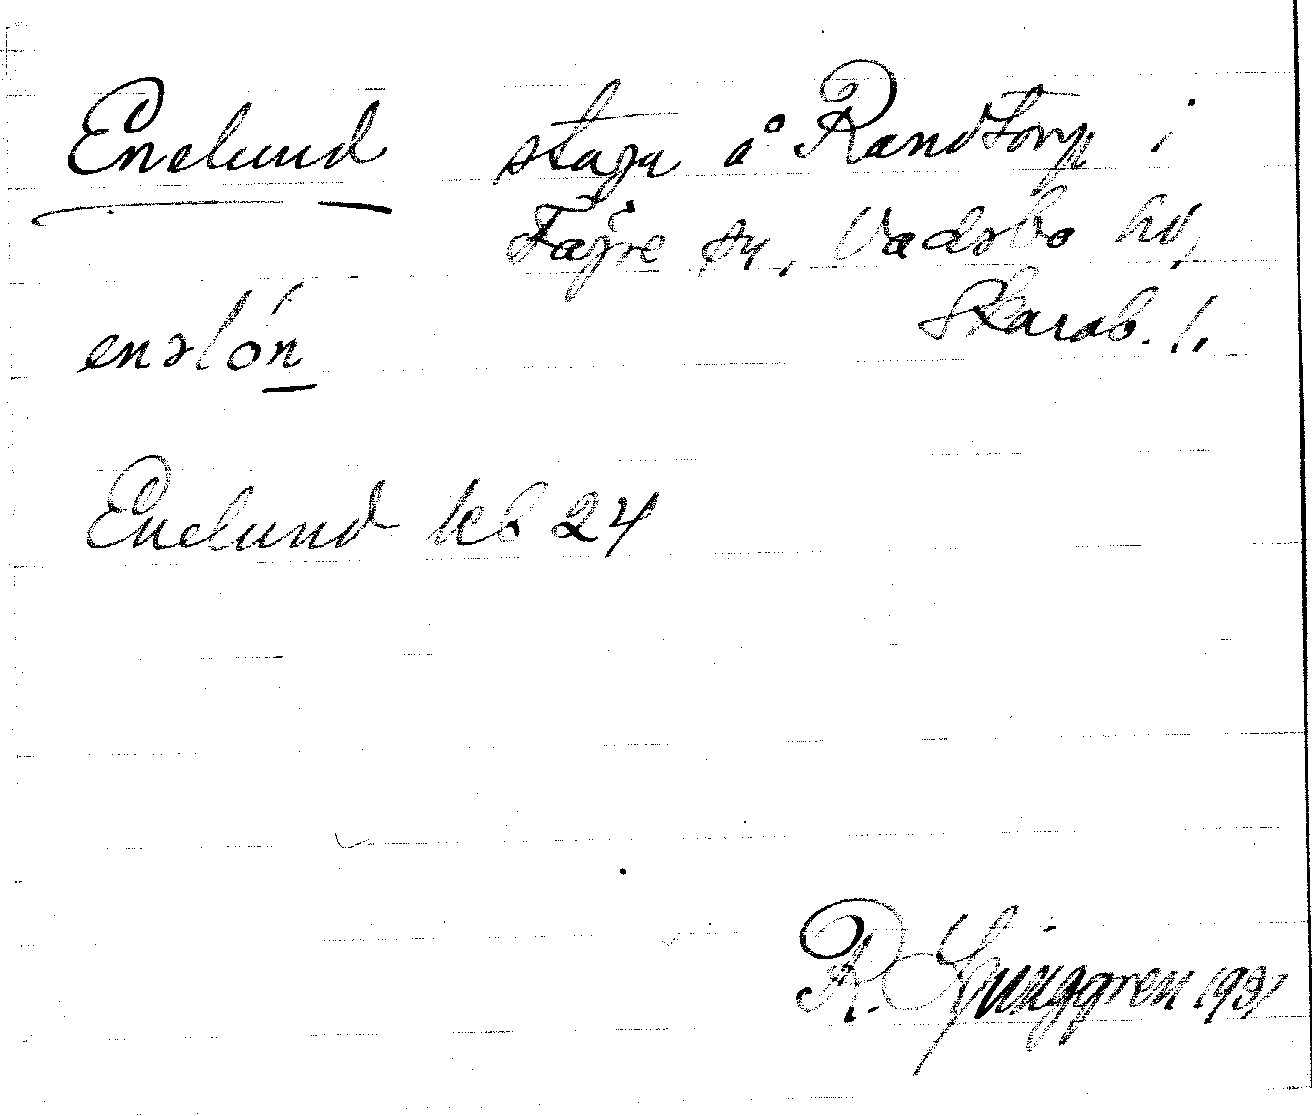 Enelund stuga å Randtorp i
Fägre sn, Vadsbo hd,
Skarab. l.
enslón
Enelund kb 24
R. Ljunggren 1931